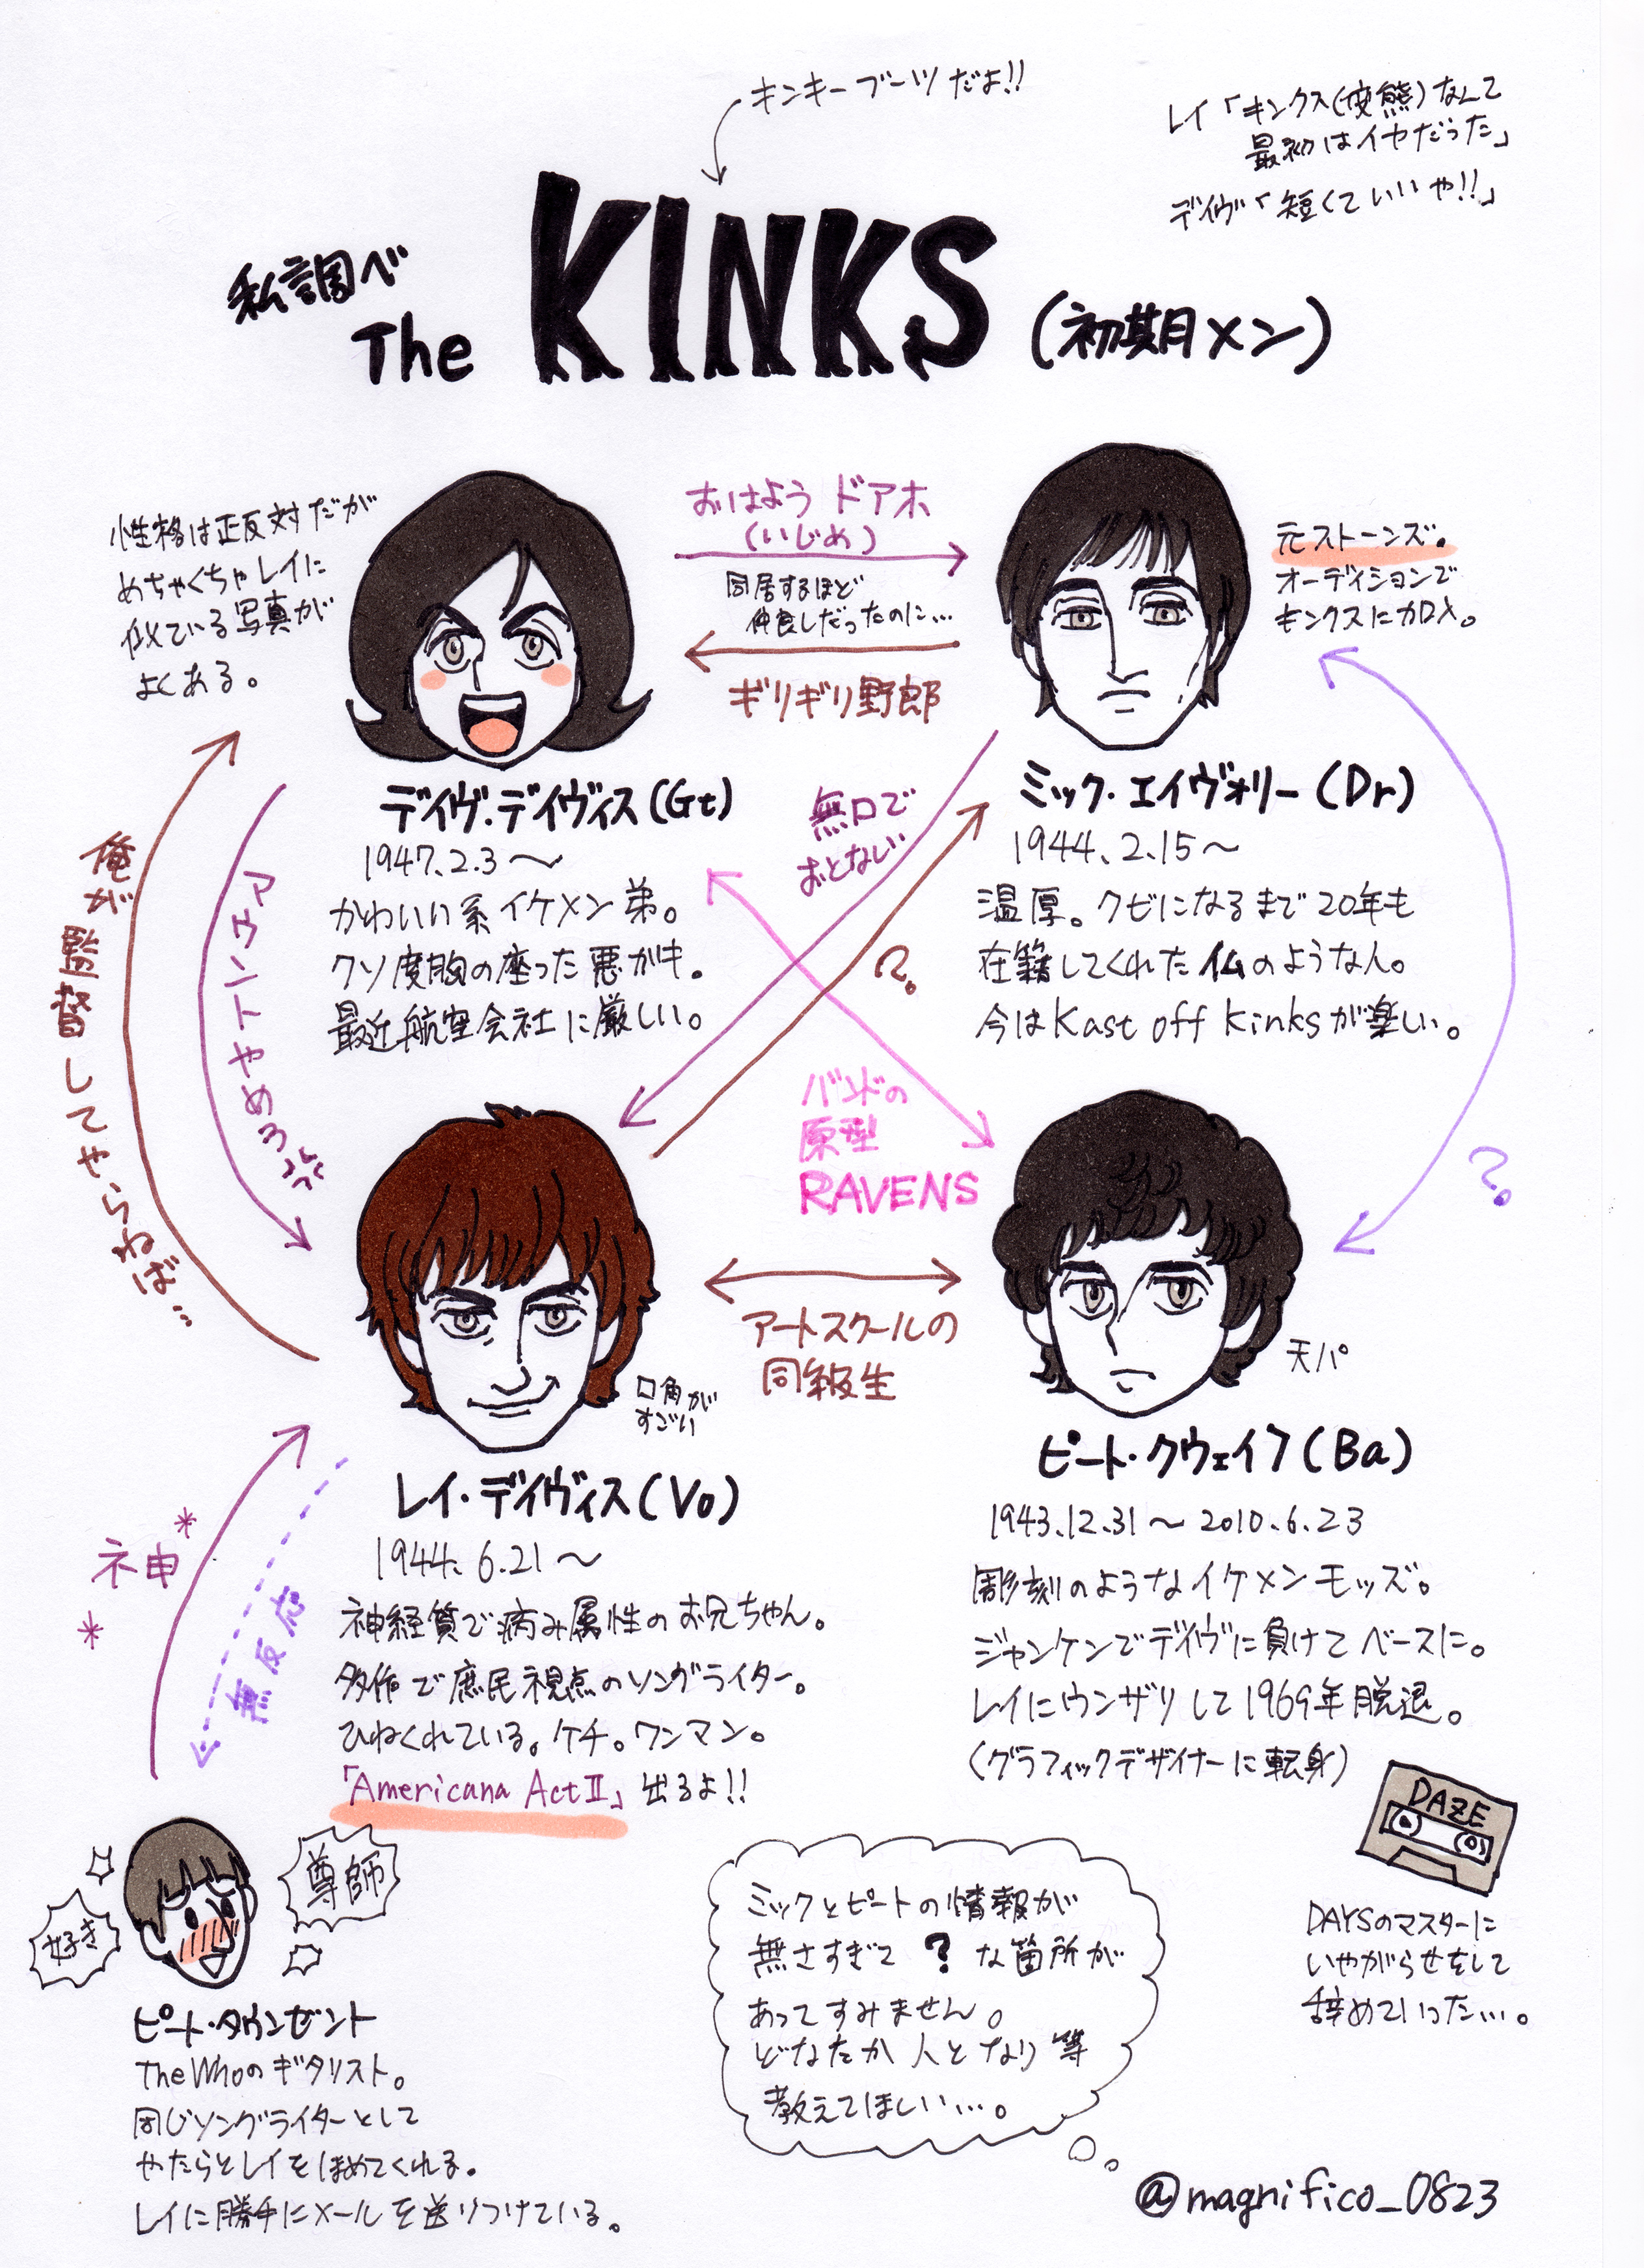 キンキーブーツだよ!!
レイ「キンクス(変態)なんて
最初はイヤだった」
デイヴ「短くていいや!!」
私調べ
The KINKS (初期メン)
性格は正反対だが
めちゃくちゃレイに
似ている写真が
よくある。
おはよう ドアホ
(いじめ)
同居するほど
仲良しだったのに…
ギリギリ野郎
元ストーンズ。
オーディションで
キンクスに加入。
デイヴ・デイヴィス(Gt)
1947.2.3〜
かわいい系イケメン弟。
クソ度胸の座った悪ガキ。
最近航空会社に厳しい。
ミック・エイヴォリー(Dr)
1944.2.15〜
温厚。クビになるまで20年も
在籍してくれた仏のような人。
今はKast off Kinksが楽しい。
無口で
おとなしい
?
俺が監督してやらねば…
マウントやめろ
バンドの
原型
RAVENS
?
アートスクールの
同級生
口角が
すごい
天パ
レイ・デイヴィス(Vo)
1944.6.21〜
神経質で病み属性のお兄ちゃん。
多作で庶民視点のソングライター。
ひねくれている。ケチ。ワンマン。
「Americana ActⅡ」出るよ!!
ピート・クウェイフ(Ba)
1943.12.31〜2010.6.23
彫刻のようなイケメンモッズ。
ジャンケンでデイヴに負けてベースに。
レイにウンザリして1969年脱退。
(グラフィックデザイナーに転身)
DAZE
DAYSのマスターに
いやがらせをして
辞めていった…。
*神*
無反応
好き
尊師
ピート・タウンゼント
The Whoのギタリスト。
同じソングライターとして
やたらとレイをほめてくれる。
レイに勝手にメールを送りつけている。
ミックとピートの情報が
無さすぎて?な箇所が
あってすみません。
どなたか人となり等
教えてほしい…。
@magnifico_0823